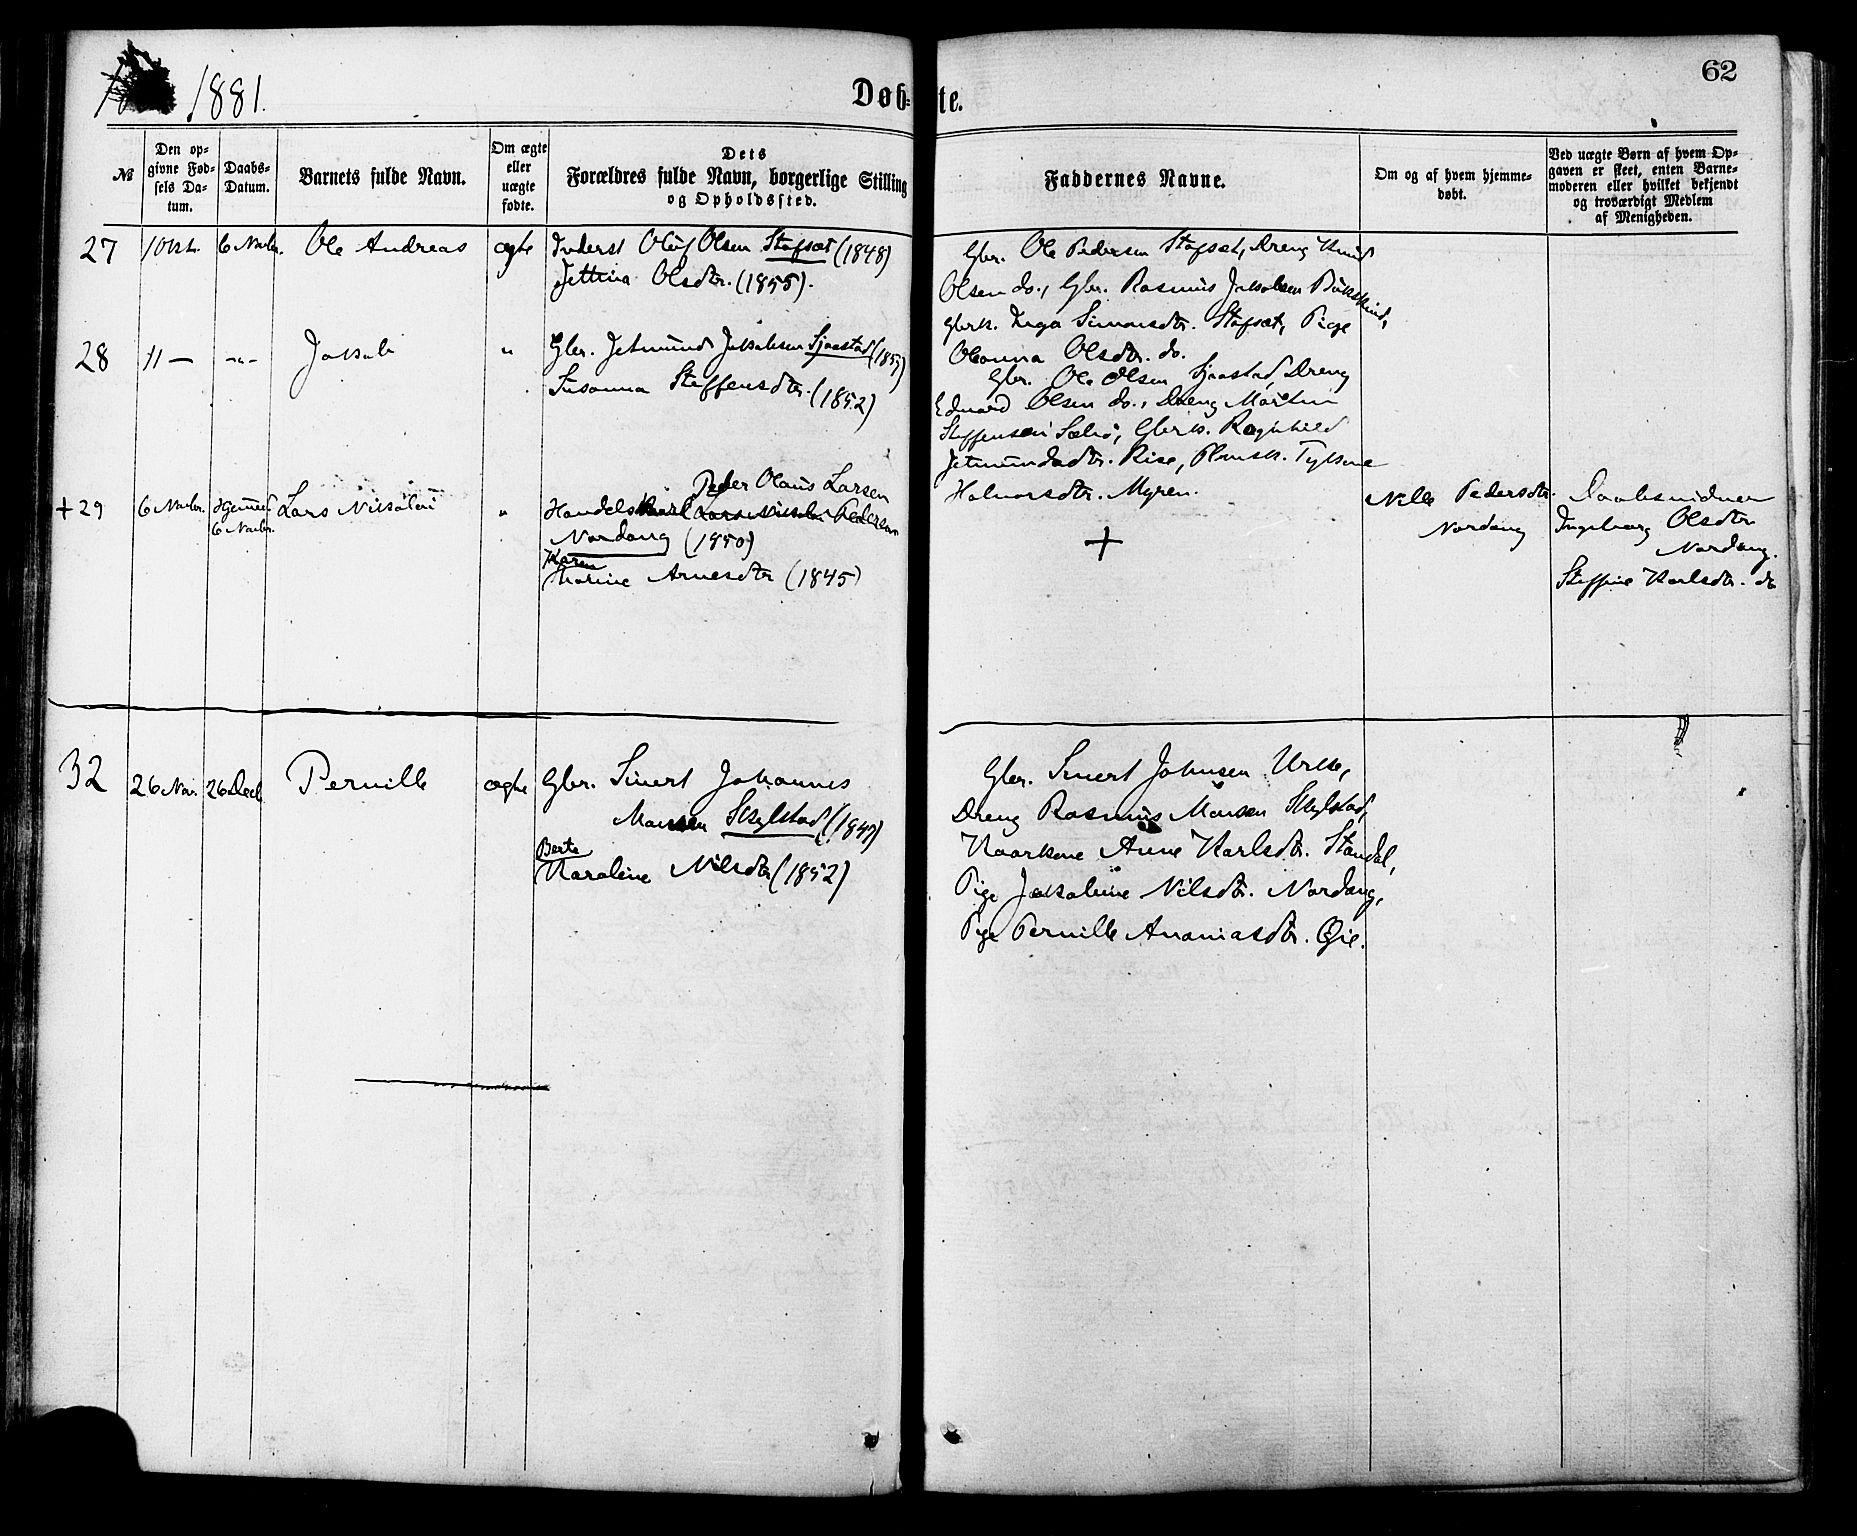 1881.
Døb-
te.
62
№
Den op-
givne Fød-
sels Da-
tum.
Daabs-
Datum.
Barnets fulde Navn.
Om ægte
eller
uægte
fødte.
Dets
Forældres fulde Navn, borgerlige Stilling
og Opholdssted.
Faddernes Navne.
Om og af hvem hjemme-
døbt.
Ved uægte Børn af hvem Op-
gaven er skeet, enten Barne-
moderen eller hvilket bekjendt
og troværdigt Medlem
af Menigheden.
27
10 Okt.
6 Novbr.
Ole Andreas
ægte
Inderst Oluf Olsen Stafset (1848)
Jettina Olsdtr. (1855).
Gbr. Ole Pedersen Stafset, Dreng Knud
Olsen do., Gbr. Rasmus Jakobsen
Gbrk. Inga Simonsdtr. Stafset, Pige
Olsdtr. do.
28
11 —
-"-
Jakob
"
Gbr. Jetmund Jakobsen Sjaastad
Susanna Steffensdtr. (1852)
Gbr. Ole Olsen Sjaastad, Dreng
Edvard Olsen do., Dreng Martin
Steffensen Sæbø, Gbrk. Ragnhild
Jetmundsdtr. Rise, Plmsk.
Halvorsdtr. Myren.
+ 29
6 Novbr.
Hjemmed.
6 Novbr.
Lars Nikolai
"
Peder Olaus Larsen
Handelskarl Lars Nikolai Pedersen
Nordang (1850)
Karen
Marine Arnesdtr (1845)
+
Nille Pedersdtr.
Nordang
Daabsvidner
Ingeborg Olsdtr
Nordang.
Steffine Karlsdtr. do
32
26 Nov.
26 Decb
Pernille
ægte
Gbr. Sivert Johannes
Monsen Skylstad (1847)
Berte
Karoline Nilsdtr (1852)
Gbr. Sivert Johnsen Urke,
Dreng Rasmus Monsen Skylstad,
Kaarkone Anne Karlsdtr. Standal,
Pige Jakobine Nilsdtr. Nordang,
Pige Pernille Ananiasdtr. Øie.